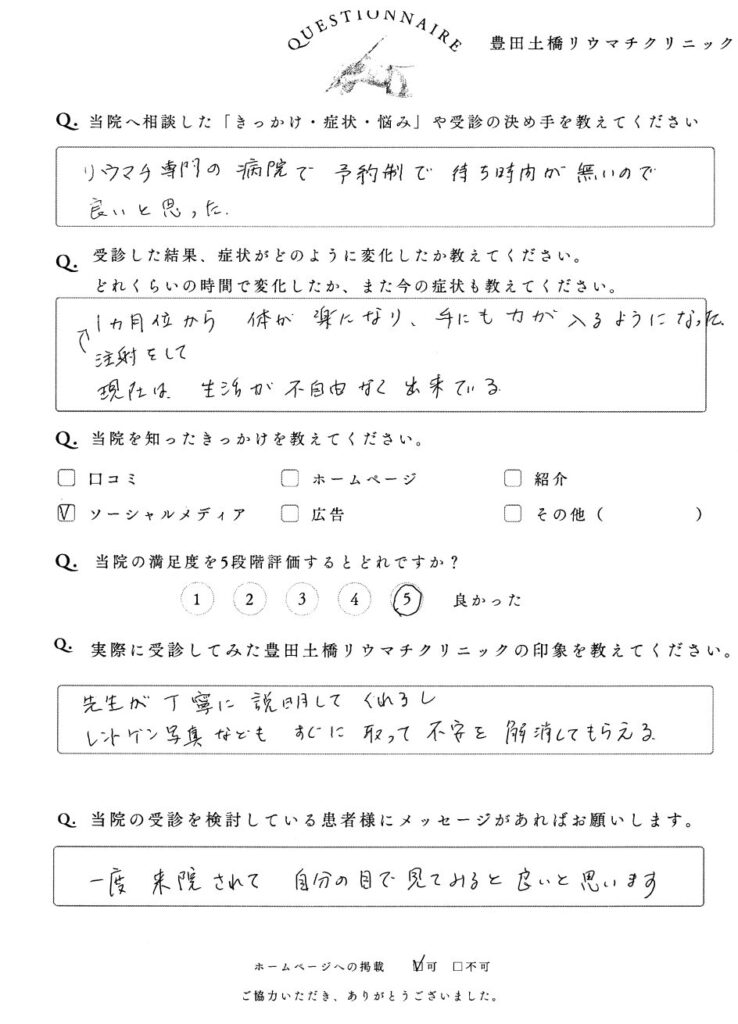 QUESTIONNAIRE
豊田土橋リウマチクリニック
Q. 当院へ相談した「きっかけ・症状・悩み」や受診の決め手を教えてください
リウマチ専門の病院で 予約制で 待ち時間が無いので
良いと思った.
Q. 受診した結果、症状がどのように変化したか教えてください。
どれくらいの時間で変化したか、また今の症状も教えてください。
1ヵ月位から 体が楽になり、手にも力が入るようになった.
注射をして
現在は 生活が不自由なく出来ている
Q. 当院を知ったきっかけを教えてください。
口コミ ホームページ 紹介
ソーシャルメディア 広告 その他（ ）
Q. 当院の満足度を5段階評価するとどれですか？
1 2 3 4 5 良かった
Q. 実際に受診してみた豊田土橋リウマチクリニックの印象を教えてください。
先生が丁寧に説明してくれるし
レントゲン写真なども すぐに取って 不安を解消してもらえる
Q. 当院の受診を検討している患者様にメッセージがあればお願いします。
一度 来院されて 自分の目で見てみると良いと思います
ホームページへの掲載 可 不可
ご協力いただき、ありがとうございました。